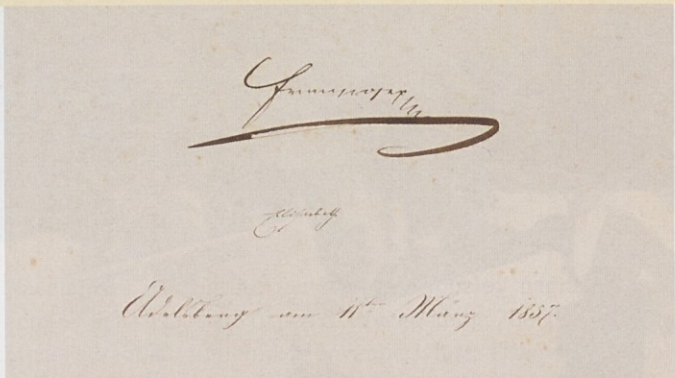 Franz Joseph
Elisabeth
Adelsberg am 11ten März 1857.